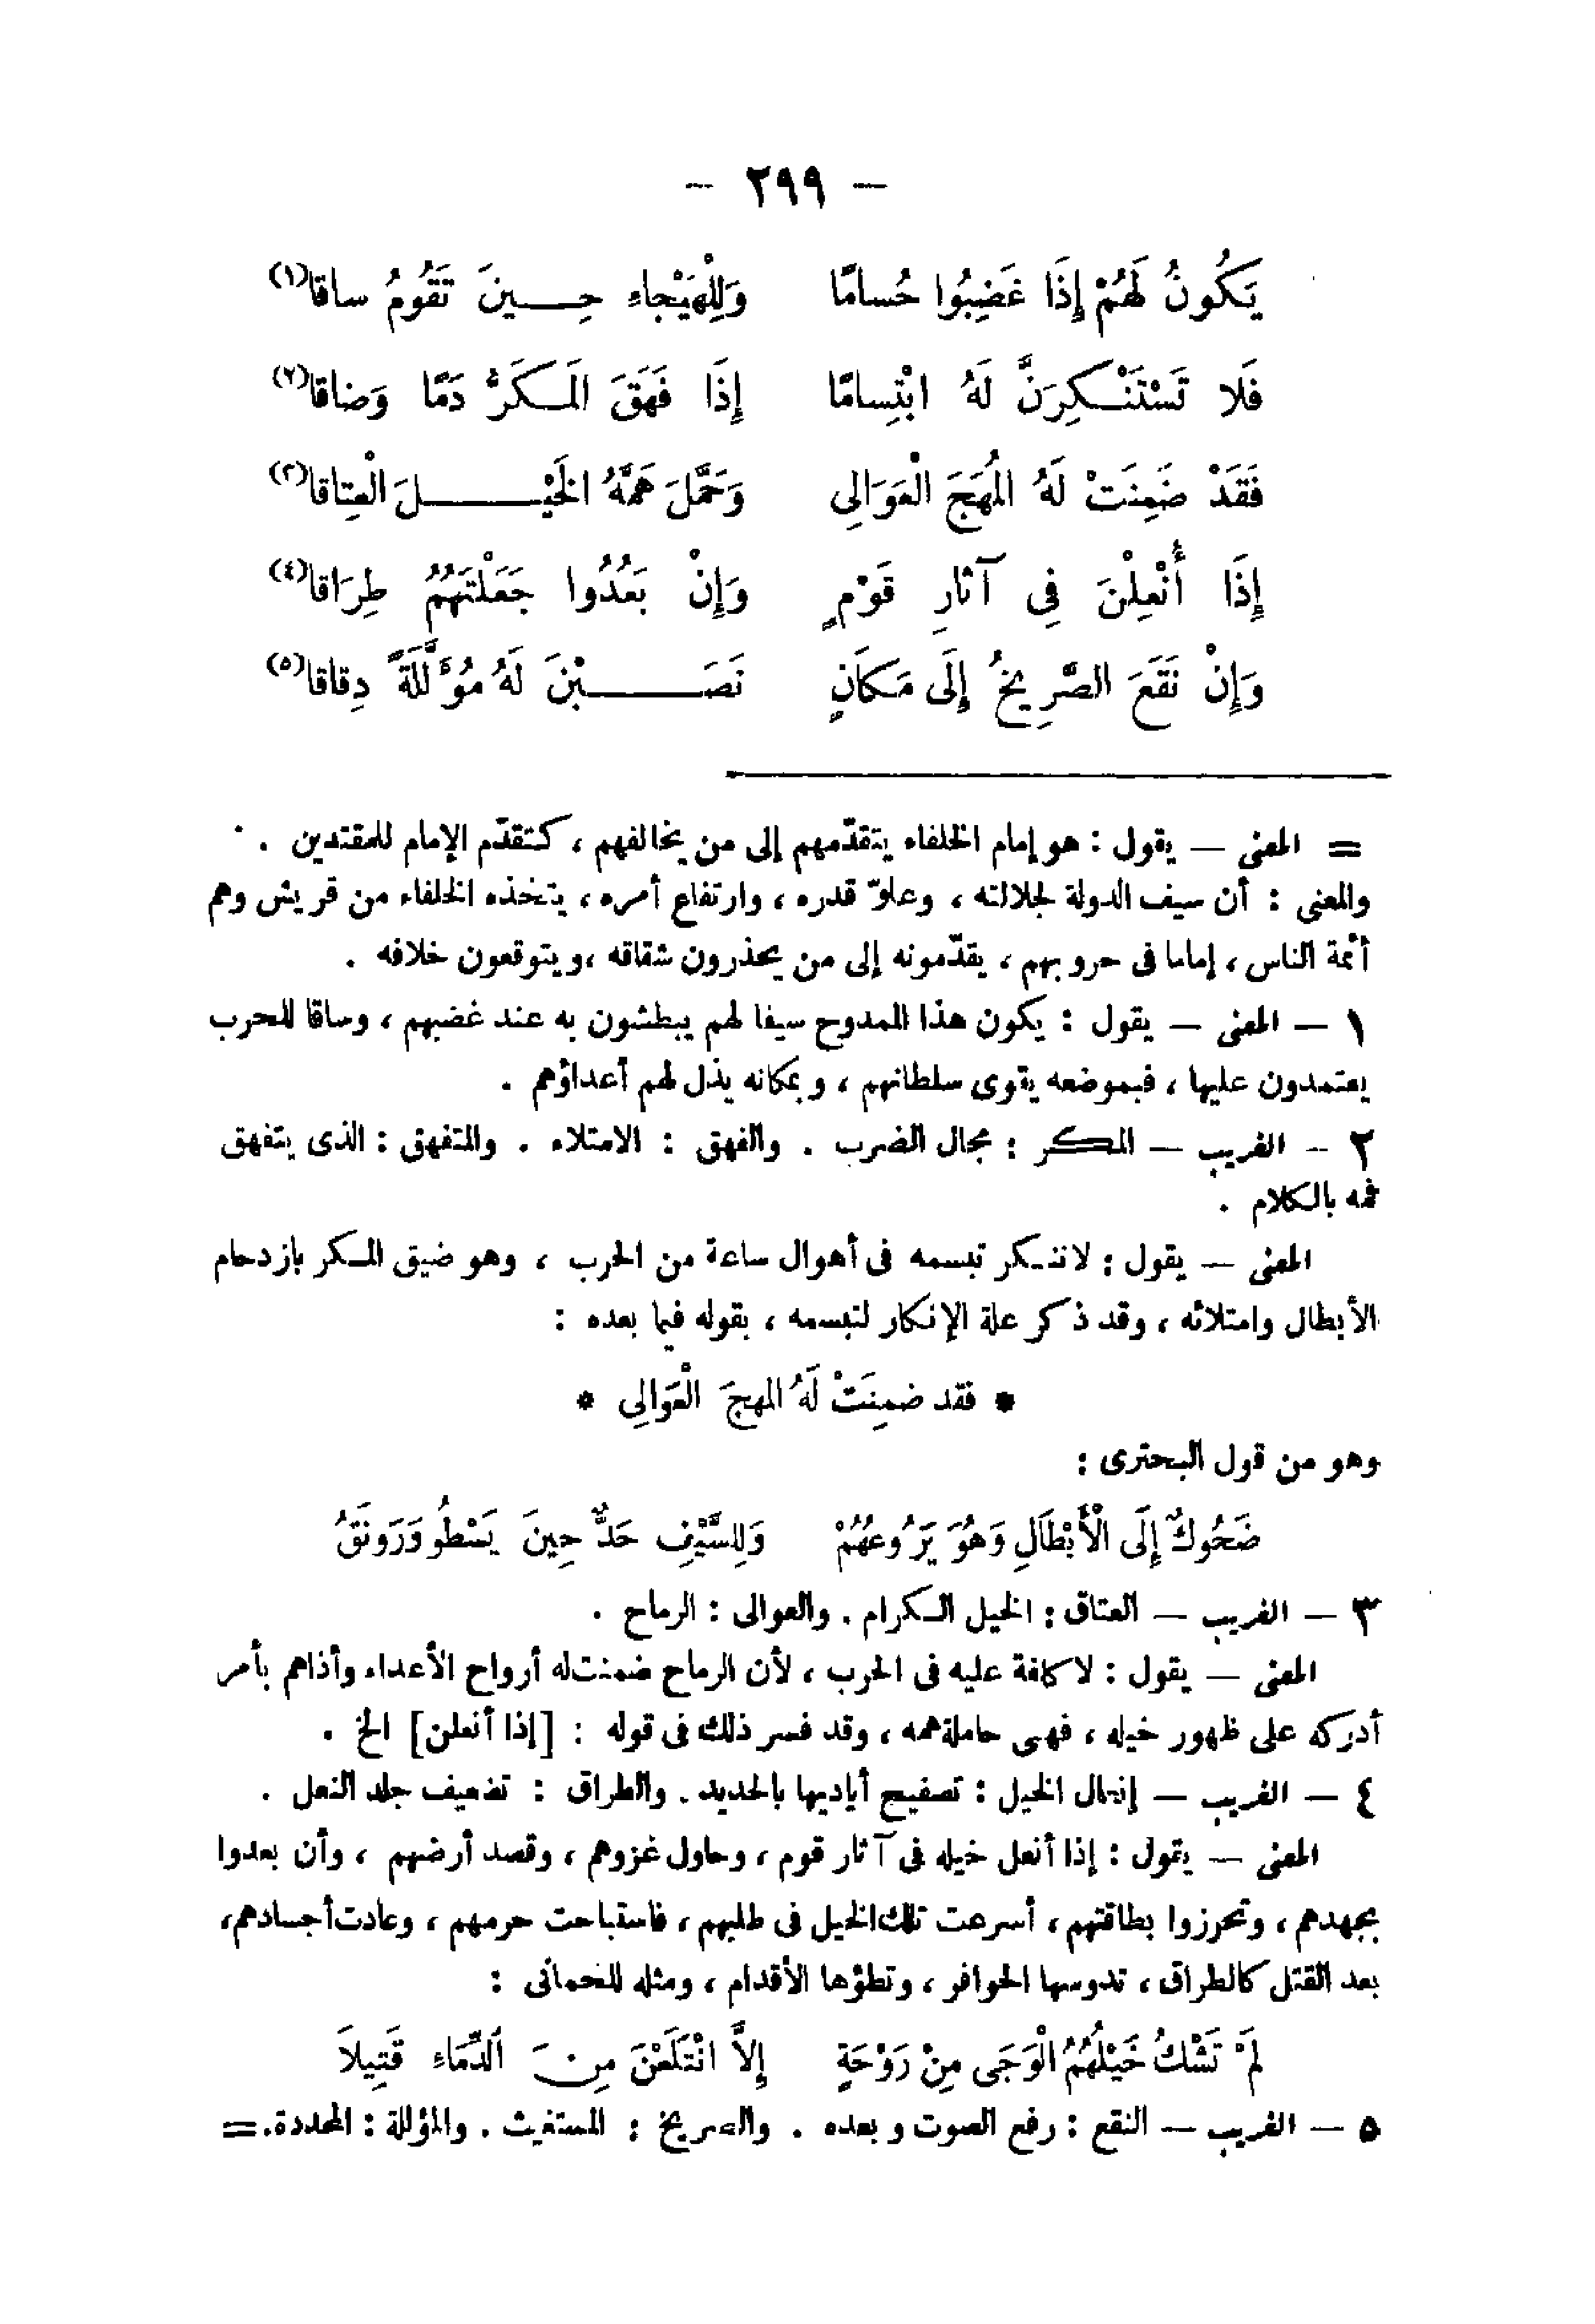 — ٢٩٩ —
يَكُونُ لَهُمْ إِذَا غَضِبُوا حُسامًا وَلِلْهَيْجاءِ حِينَ تَقُومُ ساقا(١)
فَلا تَسْتَنْكِرَنَّ لَهُ ابْتِسامًا إِذَا فَهَقَ الَمكَرُّ دَمًا وَضاقا(٢)
فَقَدْ ضَمِنَتْ لَهُ المُهَجَ الْعَوَالِى وَحَمَّلَ هَمَّهُ الخَيْلَ الْعِتاقا(٣)
إِذَا أُنْعِلْنَ فِى آثارِ قَوْمٍ وَإِنْ بَعُدُوا جَعَلْتَهُمُ طِرَاقا(٤)
وَإِنْ نَقَعَ الصَّرِيخُ إِلَى مَكَانٍ نَصَبْنَ لَهُ مُؤَلَّلَةً دِقاقا(٥)
= المعنى — يقول : هو إمام الخلفاء يتقدّمهم إلى من يخالفهم ، كتقدّم الإمام للمقتدين .
والمعنى : أن سيف الدولة لجلالته ، وعلوّ قدره ، وارتفاع أمره ، يتخذه الخلفاء من قريش وهم
أئمة الناس ، إماما فى حروبهم ، يقدّمونه إلى من يحذرون شقاقه ، ويتوقعون خلافه .
١ — المعنى — يقول : يكون هذا الممدوح سيفا لهم يبطشون به عند غضبهم ، وساقا للحرب
يعتمدون عليها ، فبموضعه يقوى سلطانهم ، وبمكانه يذل لهم أعداؤهم .
٢ — الغريب — المكر : مجال الضرب . والفهق : الامتلاء . والمتفهق : الذى يتفهق
فمه بالكلام .
المعنى — يقول : لا تنكر تبسمه فى أهوال ساعة من الحرب ، وهو ضيق المكر بازدحام
الأبطال وامتلائه ، وقد ذكر علة الإنكار لتبسمه ، بقوله فيما بعده :
* فقد ضمِنَتْ لَهُ المهجَ الْعَوَالِى *
وهو من قول البحترى :
ضَحُوكٌ إِلَى الْأَبْطَالِ وَهُوَ يَرُوعُهُمْ وَلِلسَّيْفِ حَدٌّ حِينَ يَسْطُو وَرَونَقُ
٣ — الغريب — العتاق : الخيل الكرام . والعوالى : الرماح .
المعنى — يقول : لا كلفة عليه فى الحرب ، لأن الرماح ضمنت له أرواح الأعداء وأذاهم بأمر
أدركه على ظهور خيله ، فهى حاملة همه ، وقد فسر ذلك فى قوله : [إذا أنعلن] الخ .
٤ — الغريب — إنعال الخيل : تصفيح أياديها بالحديد . والطراق : تضعيف جلد النعل .
المعنى — يقول : إذا أنعل خيله فى آثار قوم ، وحاول غزوهم ، وقصد أرضهم ، وأن بعدوا
بجهدهم ، وتحرزوا بطاقتهم ، أسرعت تلك الخيل فى طلبهم ، فاستباحت حرمهم ، وعادت أجسادهم ،
بعد القتل كالطراق ، تدوسها الحوافر ، وتطؤها الأقدام ، ومثله للحمانى :
لَمْ تَشْكُ خَيْلُهُمُ الْوَجَى مِنْ رَوْحَةٍ إِلاَّ انْتَلَعْنَ مِنَ الدِّمَاءِ قَتِيلاَ
٥ — الغريب — النقع : رفع الصوت وبعده . والصريخ : المستغيث . والمؤللة : المحددة . =